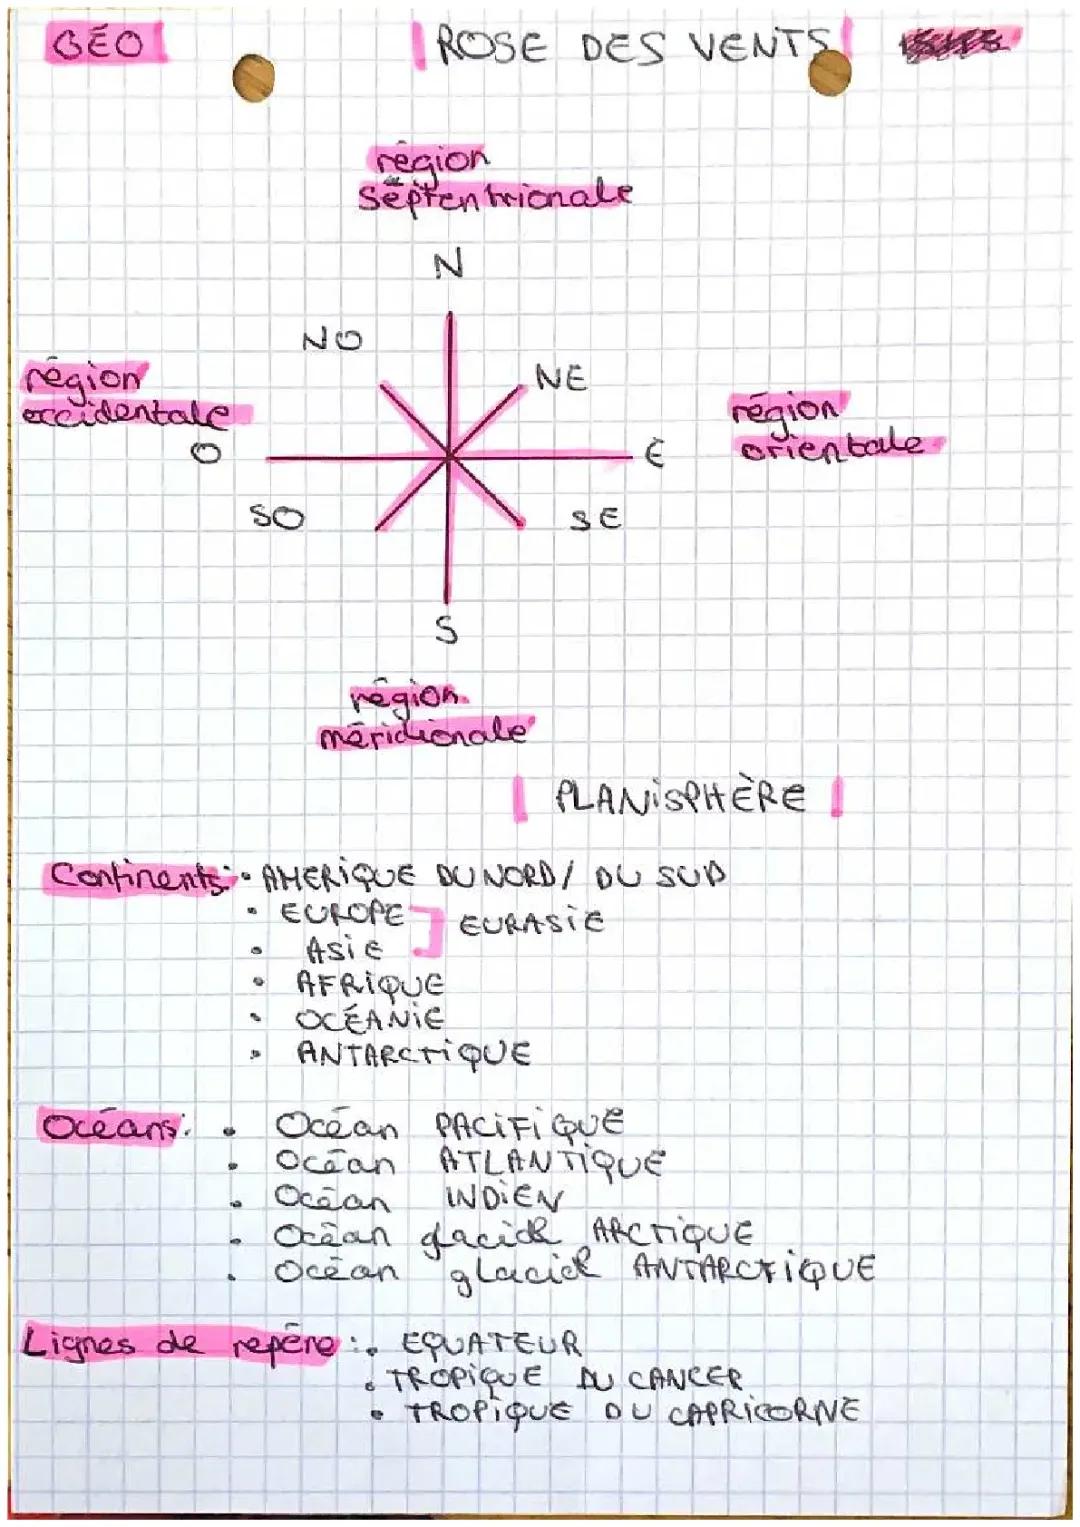 GÉO
ROSE DES VENTS
région
septentrionale
N
NO
NE
région
occidentale
région
orientale
O
E
SO
SE
S
région
méridionale
PLANISPHÈRE
Continents: • AMERIQUE DU NORD / DU SUD
• EUROPE
EURASIE
• ASIE
• AFRIQUE
• OCÉANIE
• ANTARCTIQUE
Océans: • Océan PACIFIQUE
• Océan ATLANTIQUE
• Océan INDIEN
• Océan glacial ARCTIQUE
• Océan glacial ANTARCTIQUE
Lignes de repère: • EQUATEUR
• TROPIQUE DU CANCER
• TROPIQUE DU CAPRICORNE